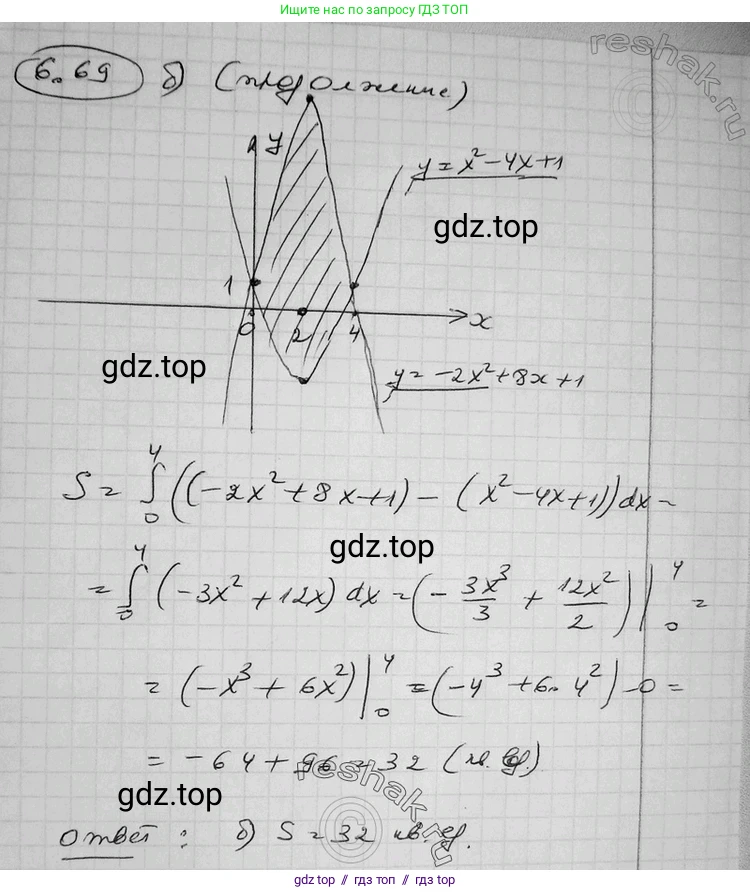 Ищите нас по запросу ГДЗ ТОП
reshak.ru
6.69 б) (продолжение)
y
y = x² - 4x + 1
gdz.top
1
0 2 4 x
gdz.top
y = -2x² + 8x + 1
S = ∫₀⁴ ((-2x² + 8x + 1) - (x² - 4x + 1)) dx =
gdz.top
= ∫₀⁴ (-3x² + 12x) dx = (- 3x³/3 + 12x²/2) |₀⁴ =
= (-x³ + 6x²) |₀⁴ = (-4³ + 6 · 4²) - 0 =
= -64 + 96 = 32 (кв. ед.)
reshak.ru
gdz.top
Ответ: б) S = 32 кв. ед.
gdz.top // гдз топ // gdz.top